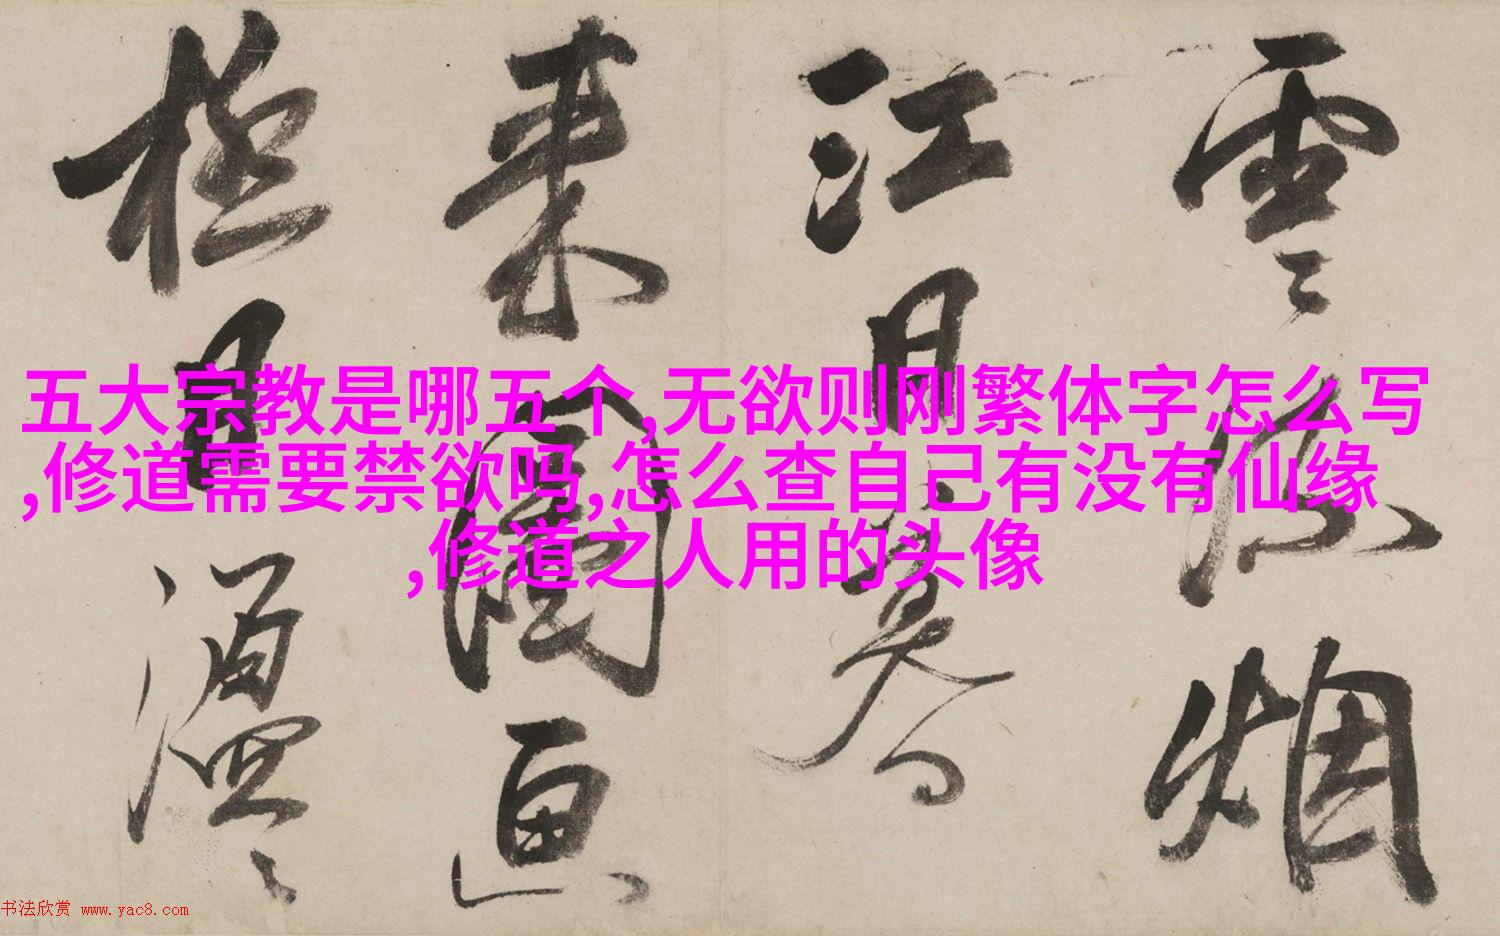 雲烟
江月
来圖画
極目
五大宗教是哪五个,无欲则刚繁体字怎么写
,修道需要禁欲吗,怎么查自己有没有仙缘
,修道之人用的头像
书法欣赏 www.yac8.com